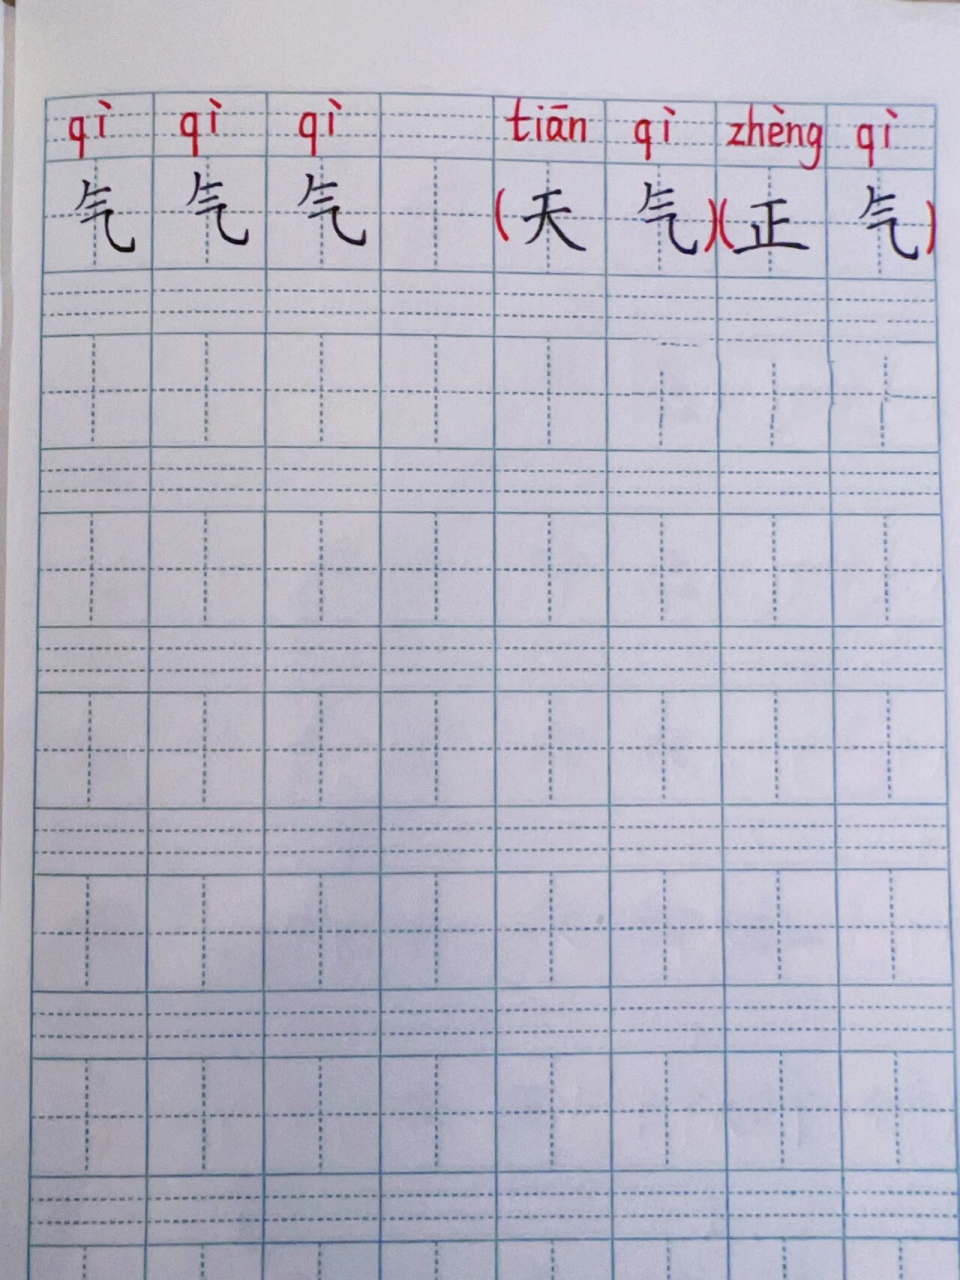 qì qì qì tiān qì zhèng qì
气 气 气 (天 气)(正 气)